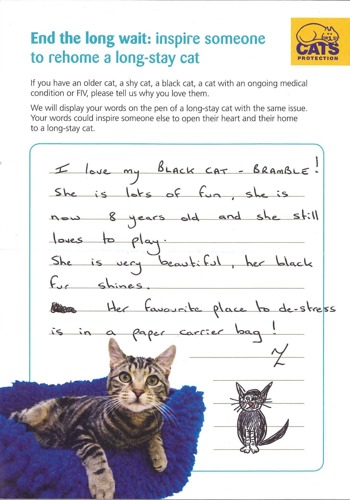 End the long wait: inspire someone
to rehome a long-stay cat
CATS
PROTECTION
If you have an older cat, a shy cat, a black cat, a cat with an ongoing medical
condition or FIV, please tell us why you love them.
We will display your words on the pen of a long-stay cat with the same issue.
Your words could inspire someone else to open their heart and their home
to a long-stay cat.
I love my BLACK CAT - BRAMBLE!
She is lots of fun, she is
now 8 years old and she still
loves to play.
She is very beautiful, her black
fur shines.
Her favourite place to de-stress
is in a paper carrier bag!